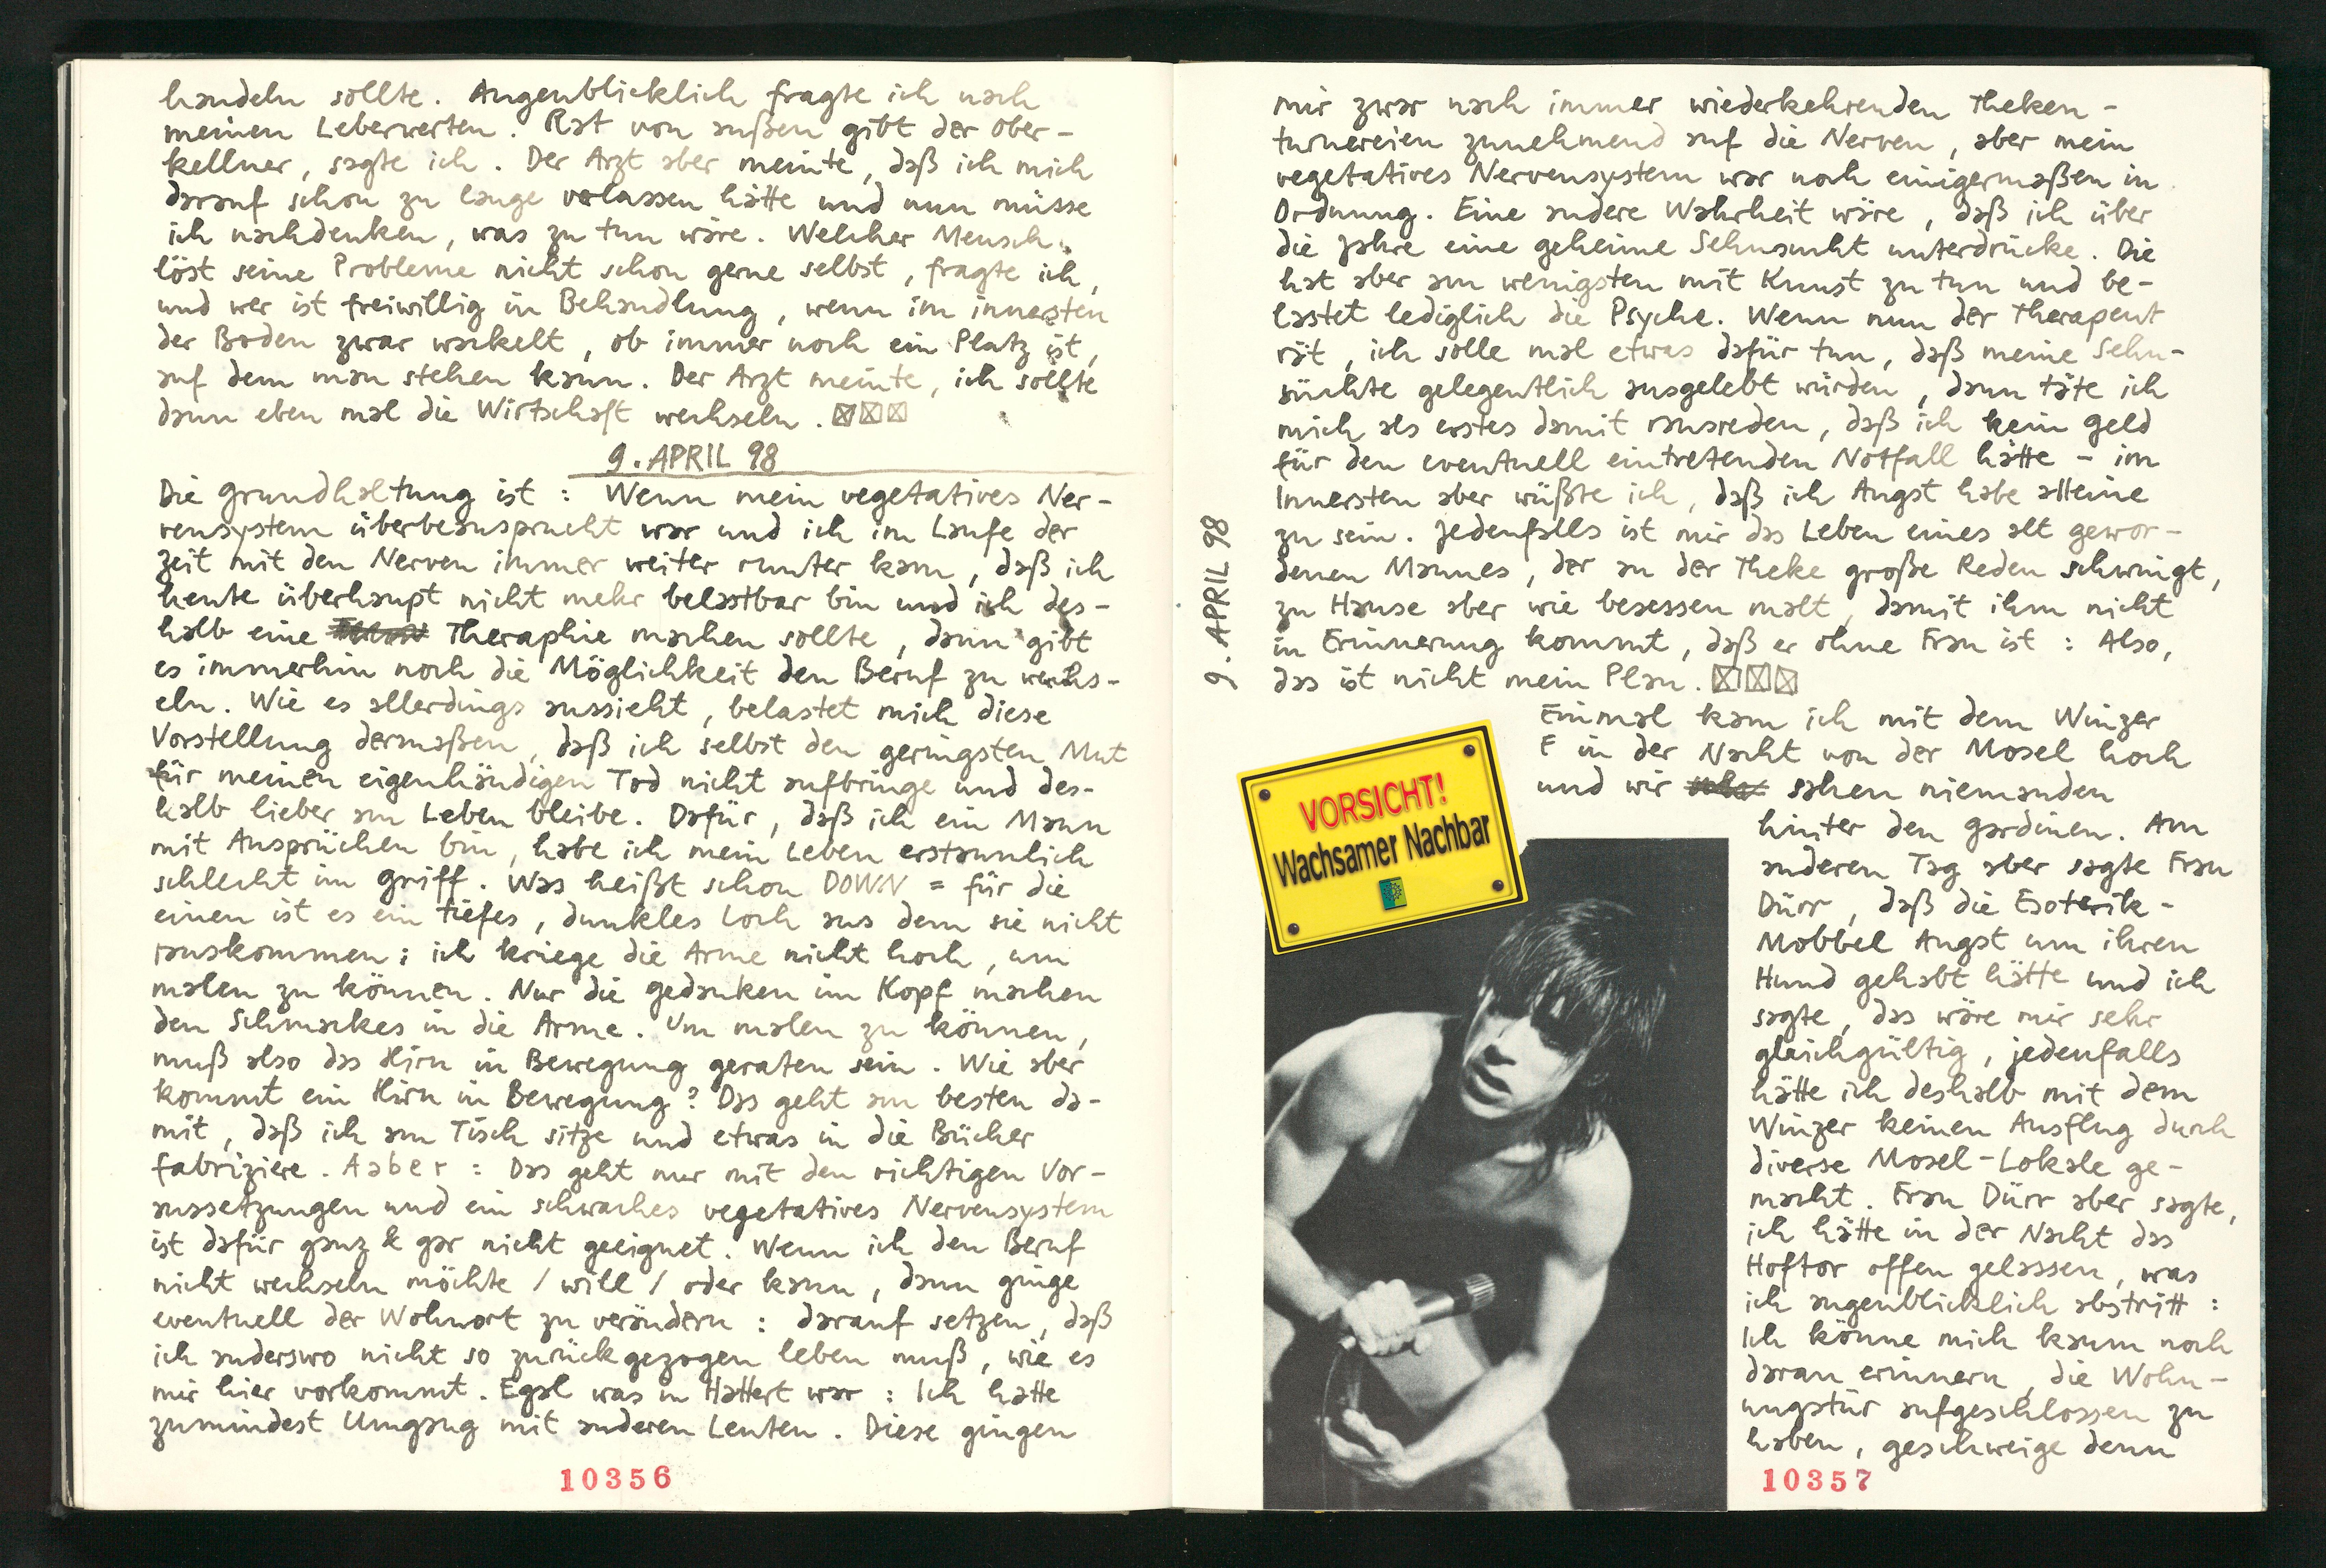 handeln sollte. Augenblicklich fragte ich nach
meinen Leberwerten. Rat von außen gibt der Ober-
kellner, sagte ich. Der Arzt aber meinte, daß ich mich
darauf schon zu lange verlassen hätte und nun müsse
ich nachdenken, was zu tun wäre. Welcher Mensch
löst seine Probleme nicht schon gerne selbst, fragte ich,
und wer ist freiwillig in Behandlung, wenn im innersten
der Boden zwar wackelt, ob immer noch ein Platz ist,
auf dem man stehen kann. Der Arzt meinte, ich sollte
dann eben mal die Wirtschaft wechseln. ☒☒☒
9. APRIL 98
Die Grundhaltung ist : Wenn mein vegetatives Ner-
vensystem überbeansprucht war und ich im Laufe der
Zeit mit den Nerven immer weiter runter kam, daß ich
heute überhaupt nicht mehr belastbar bin und ich des-
halb eine Theraphie machen sollte, dann gibt
es immerhin noch die Möglichkeit den Beruf zu wechs-
eln. Wie es allerdings aussieht, belastet mich diese
Vorstellung dermaßen, daß ich selbst den geringsten Mut
für meinen eigenhändigen Tod nicht aufbringe und des-
halb lieber am Leben bleibe. Dafür, daß ich ein Mann
mit Ansprüchen bin, habe ich mein Leben erstaunlich
schlecht im Griff. Was heißt schon DOWN = für die
einen ist es ein tiefes, dunkles Loch aus dem sie nicht
rauskommen ; ich kriege die Arme nicht hoch, um
malen zu können. Nur die Gedanken im Kopf machen
den Schmackes in die Arme. Um malen zu können,
muß also das Hirn in Bewegung geraten sein. Wie aber
kommt ein Hirn in Bewegung? Das geht am besten da-
mit, daß ich am Tisch sitze und etwas in die Bücher
fabriziere. Aaber : Das geht nur mit den richtigen Vor-
aussetzungen und ein schwaches vegetatives Nervensystem
ist dafür ganz & gar nicht geeignet. Wenn ich den Beruf
nicht wechseln möchte / will / oder kann, dann ginge
eventuell der Wohnort zu verändern : darauf setzen, daß
ich anderswo nicht so zurückgezogen leben muß, wie es
mir hier vorkommt. Egal was in Hattert war : Ich hatte
zumindest Umgang mit anderen Leuten. Diese gingen
10356
mir zwar nach immer wiederkehrenden Theken-
turnereien zunehmend auf die Nerven, aber mein
vegetatives Nervensystem war noch einigermaßen in
Ordnung. Eine andere Wahrheit wäre, daß ich über
die Jahre eine geheime Sehnsucht unterdrücke. Die
hat aber am wenigsten mit Kunst zu tun und be-
lastet lediglich die Psyche. Wenn nun der Therapeut
rät, ich solle mal etwas dafür tun, daß meine Sehn-
süchte gelegentlich ausgelebt würden, dann täte ich
mich als erstes damit rausreden, daß ich kein Geld
für den eventuell eintretenden Notfall hätte - im
Innersten aber wüßte ich, daß ich Angst habe alleine
zu sein. Jedenfalls ist mir das Leben eines alt gewor-
denen Mannes, der an der Theke große Reden schwingt,
zu Hause aber wie besessen malt, damit ihm nicht
in Erinnerung kommt, daß er ohne Frau ist : Also,
das ist nicht mein Plan. ☒☒☒
9. APRIL 98
Einmal kam ich mit dem Winzer
F in der Nacht von der Mosel hoch
und wir sahen niemanden
hinter den Gardinen. Am
anderen Tag aber sagte Frau
Dürr, daß die Esoterik-
Mobbel Angst um ihren
Hund gehabt hätte und ich
sagte, das wäre mir sehr
gleichgültig, jedenfalls
hätte ich deshalb mit dem
Winzer keinen Ausflug durch
diverse Mosel-Lokale ge-
macht. Frau Dürr aber sagte,
ich hätte in der Nacht das
Hoftor offen gelassen, was
ich augenblicklich abstritt :
Ich könne mich kaum noch
daran erinnern, die Wohn-
ungstür aufgeschlossen zu
haben, geschweige denn
VORSICHT!
Wachsamer Nachbar
10357